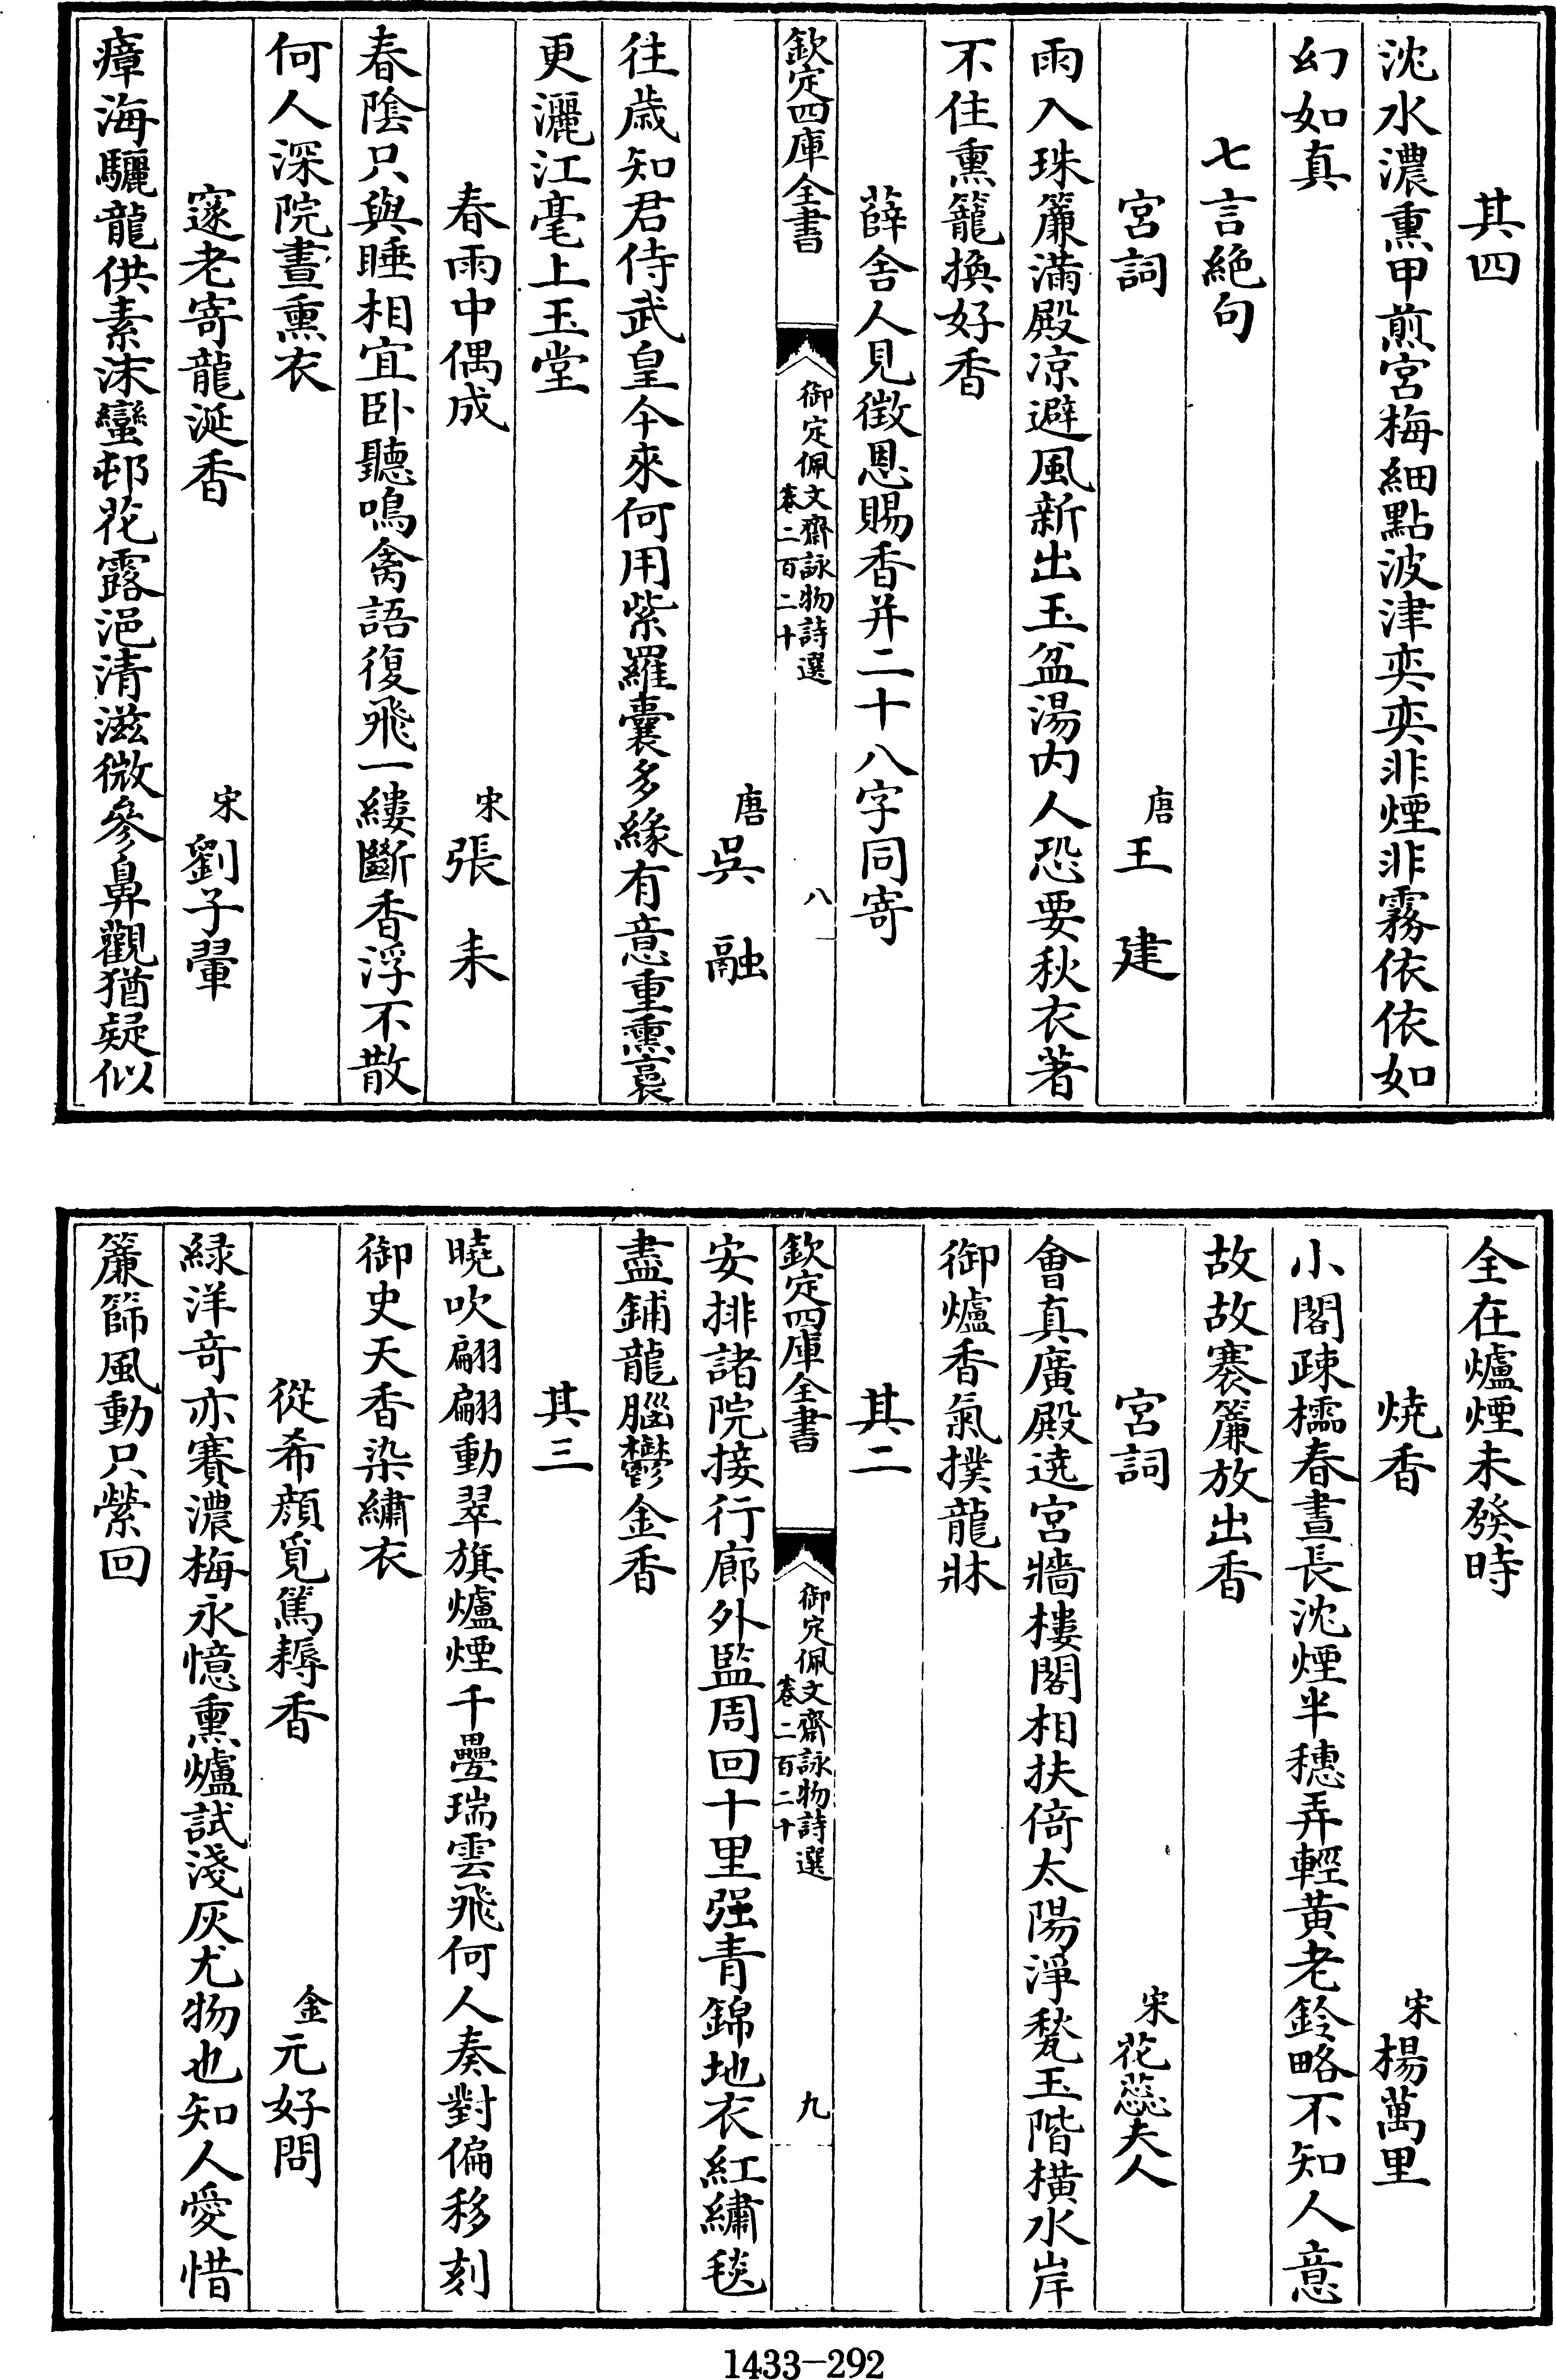 其四
沈水濃熏甲煎宮梅細點波津奕奕非煙非霧依依如
幻如真
七言絶句
宮詞　唐王建
雨入珠簾滿殿凉避風新出玉盆湯内人恐要秋衣著
不住熏籠換好香
薛舍人見徵恩賜香并二十八字同寄
欽定四庫全書　御定佩文齋詠物詩選　卷二百二十　八
唐吳融
往歲知君侍武皇今來何用紫羅囊多緣有意重熏裛
更灑江毫上玉堂
春雨中偶成　宋張耒
春陰只與睡相宜卧聽鳴禽語復飛一縷斷香浮不散
何人深院晝熏衣
邃老寄龍涎香　宋劉子翬
瘴海驪龍供素沫蠻邨花露浥清滋微參鼻觀猶疑似
全在爐煙未發時
燒香　宋楊萬里
小閣疎櫺春晝長沈煙半穗弄輕黃老鈴略不知人意
故故褰簾放出香
宮詞　宋花蕊夫人
會真廣殿遶宮牆樓閣相扶倚太陽淨甃玉階橫水岸
御爐香氣撲龍牀
其二
欽定四庫全書　御定佩文齋詠物詩選　卷二百二十　九
安排諸院接行廊外監周回十里强青錦地衣紅繡毯
盡鋪龍腦鬱金香
其三
曉吹翩翩動翠旗爐煙千疊瑞雲飛何人奏對偏移刻
御史天香染繡衣
從希顔覓篤耨香　金元好問
緑洋奇亦賽濃梅永憶熏爐試淺灰尤物也知人愛惜
簾篩風動只縈回
1433-292